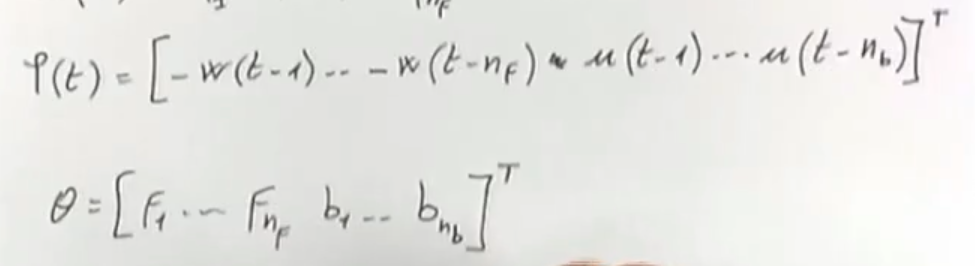 φ(t) = [-w(t-1) ·· -w(t-n_F) u(t-1) ... u(t-n_b)]^T
θ = [F_1 ... F_{n_F} b_1 ... b_{n_b}]^T